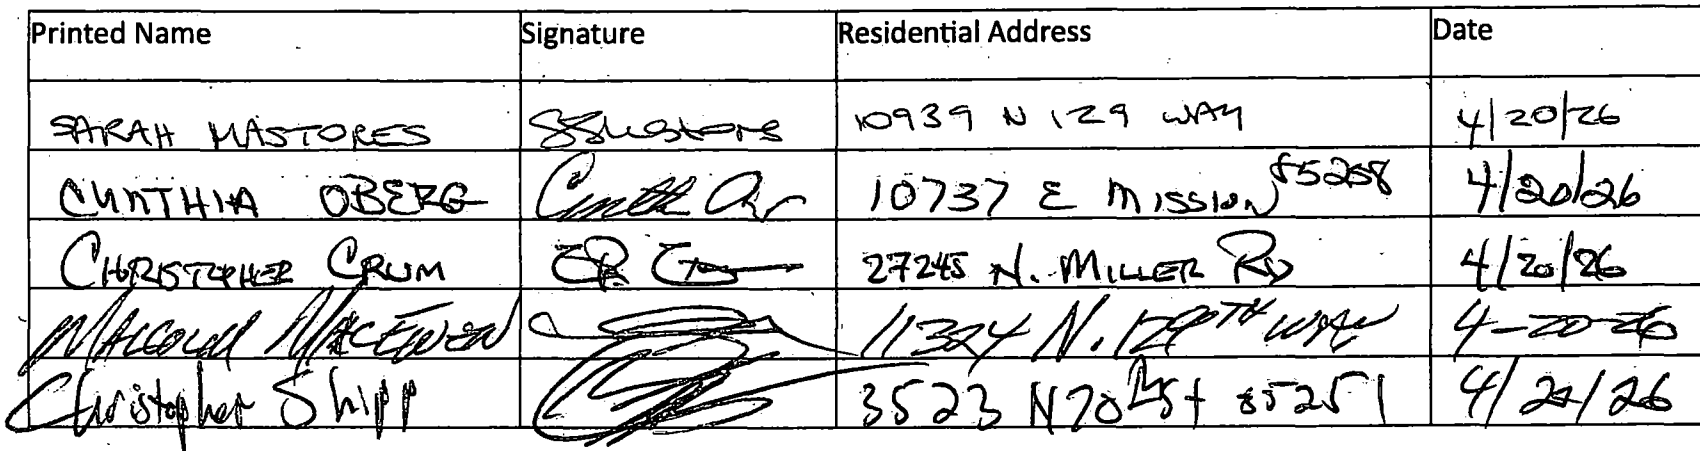 Printed Name Signature Residential Address Date
SARAH MASTORES 10939 N 129 WAY 4/20/26
CYNTHIA OBERG 10737 E MISSION 85258 4/20/26
CHRISTOPHER CRUM 27245 N. MILLER RD 4/20/26
MALCOLM MACEWEN 11324 N. 129TH WAY 4-20-26
Christopher Shipp 3523 N 70th St 85251 4/20/26